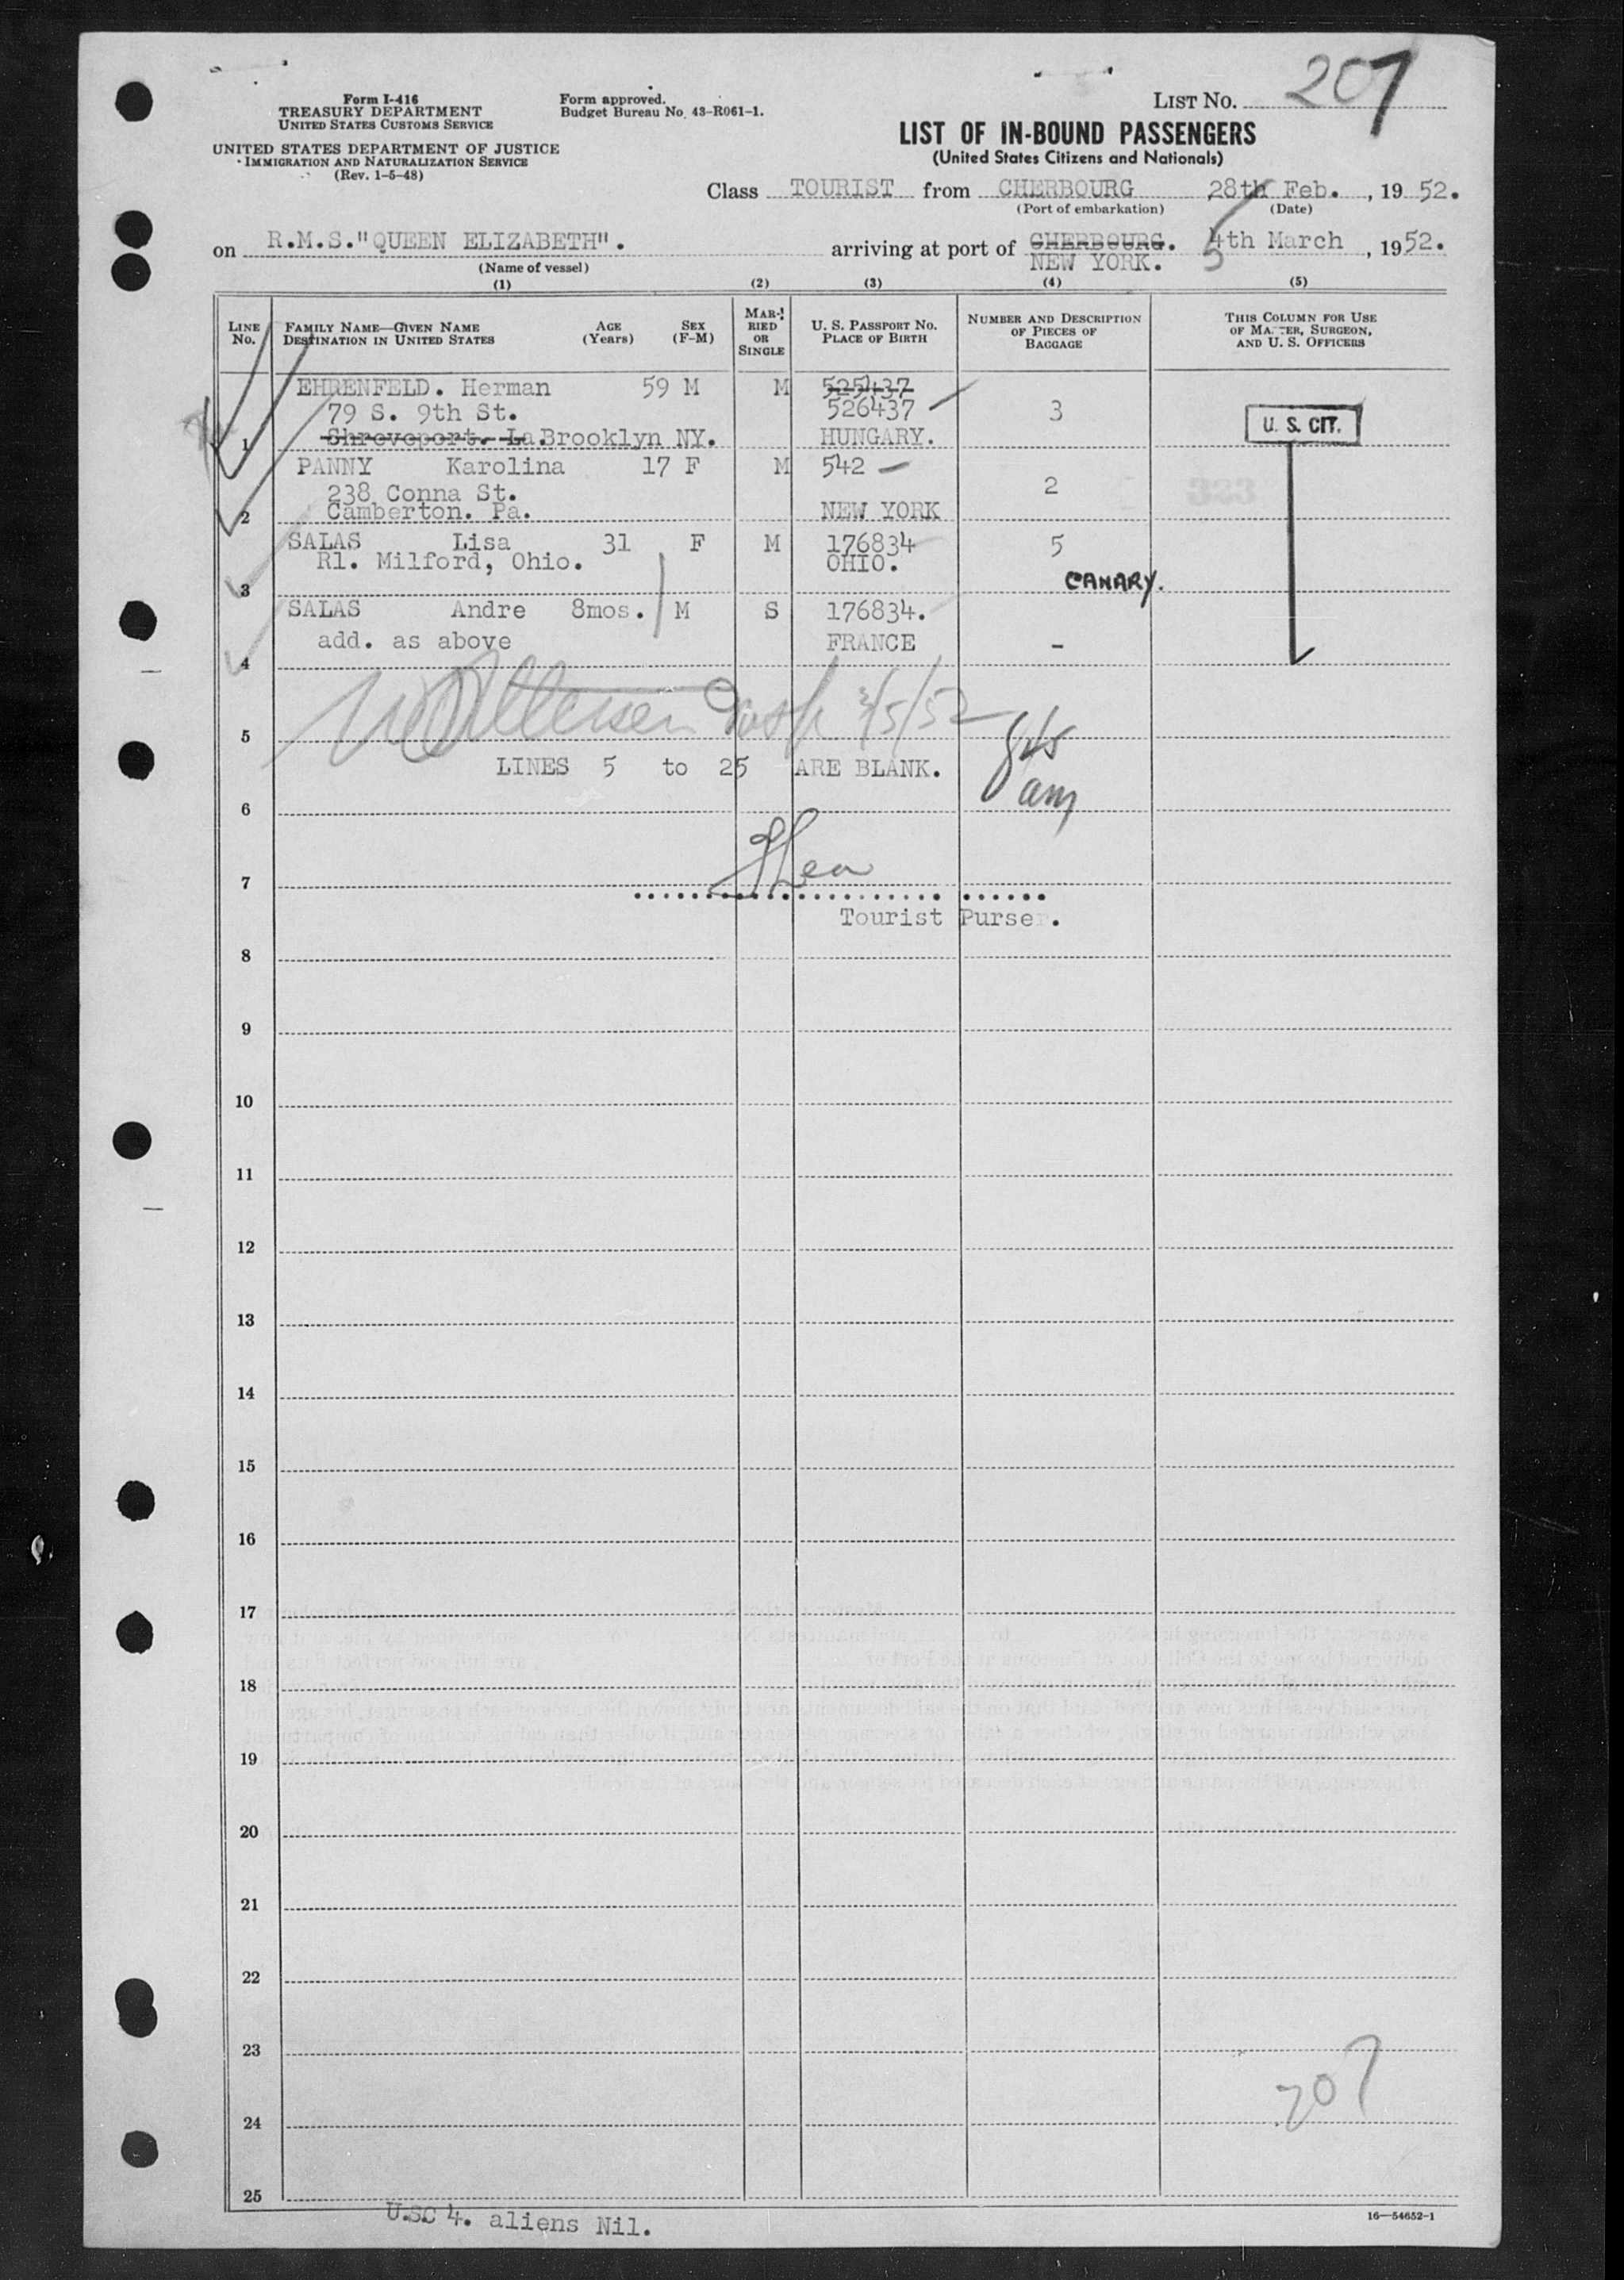 LIST NO. 207
Form I-416
TREASURY DEPARTMENT
UNITED STATES CUSTOMS SERVICE
UNITED STATES DEPARTMENT OF JUSTICE
IMMIGRATION AND NATURALIZATION SERVICE
(Rev. 1-5-48)
Form approved.
Budget Bureau No. 43-R061-1.
LIST OF IN-BOUND PASSENGERS
(United States Citizens and Nationals)
Class TOURIST from CHERBOURG 28th Feb. , 19 52.
(Port of embarkation) (Date)
on R.M.S."QUEEN ELIZABETH". arriving at port of CHERBOURG. 4th March , 1952.
NEW YORK. 5
(Name of vessel)
(1) (2) (3) (4) (5)
LINE No. FAMILY NAME—GIVEN NAME DESTINATION IN UNITED STATES AGE (Years) SEX (F-M) MARRIED OR SINGLE U. S. PASSPORT NO. PLACE OF BIRTH NUMBER AND DESCRIPTION OF PIECES OF BAGGAGE THIS COLUMN FOR USE OF MASTER, SURGEON, AND U. S. OFFICERS
EHRENFELD. Herman 59 M M 525437
79 S. 9th St. 526437 3 U. S. CIT.
1 Shreveport. La. Brooklyn NY. HUNGARY.
PANNY Karolina 17 F M 542
238 Conna St. 2
2 Camberton. Pa. NEW YORK
SALAS Lisa 31 F M 176834 5
R1. Milford, Ohio. OHIO.
3 CANARY.
SALAS Andre 8mos. M S 176834.
add. as above FRANCE -
4
3/5/52
5
LINES 5 to 25 ARE BLANK.
845
am
6
7
Tourist Purser.
8
9
10
11
12
13
14
15
16
17
18
19
20
21
22
23
207
24
25
U.SC 4. aliens Nil.
16—54652-1